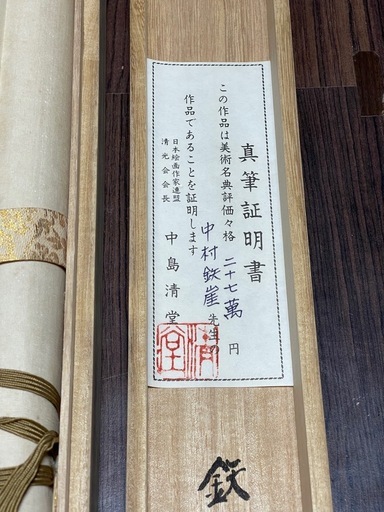 真筆証明書
この作品は美術名典評価々格二十七萬円
中村鉄崖先生の
作品であることを証明します
日本絵画作家連盟
清光会会長
中島清堂
清堂
鉄